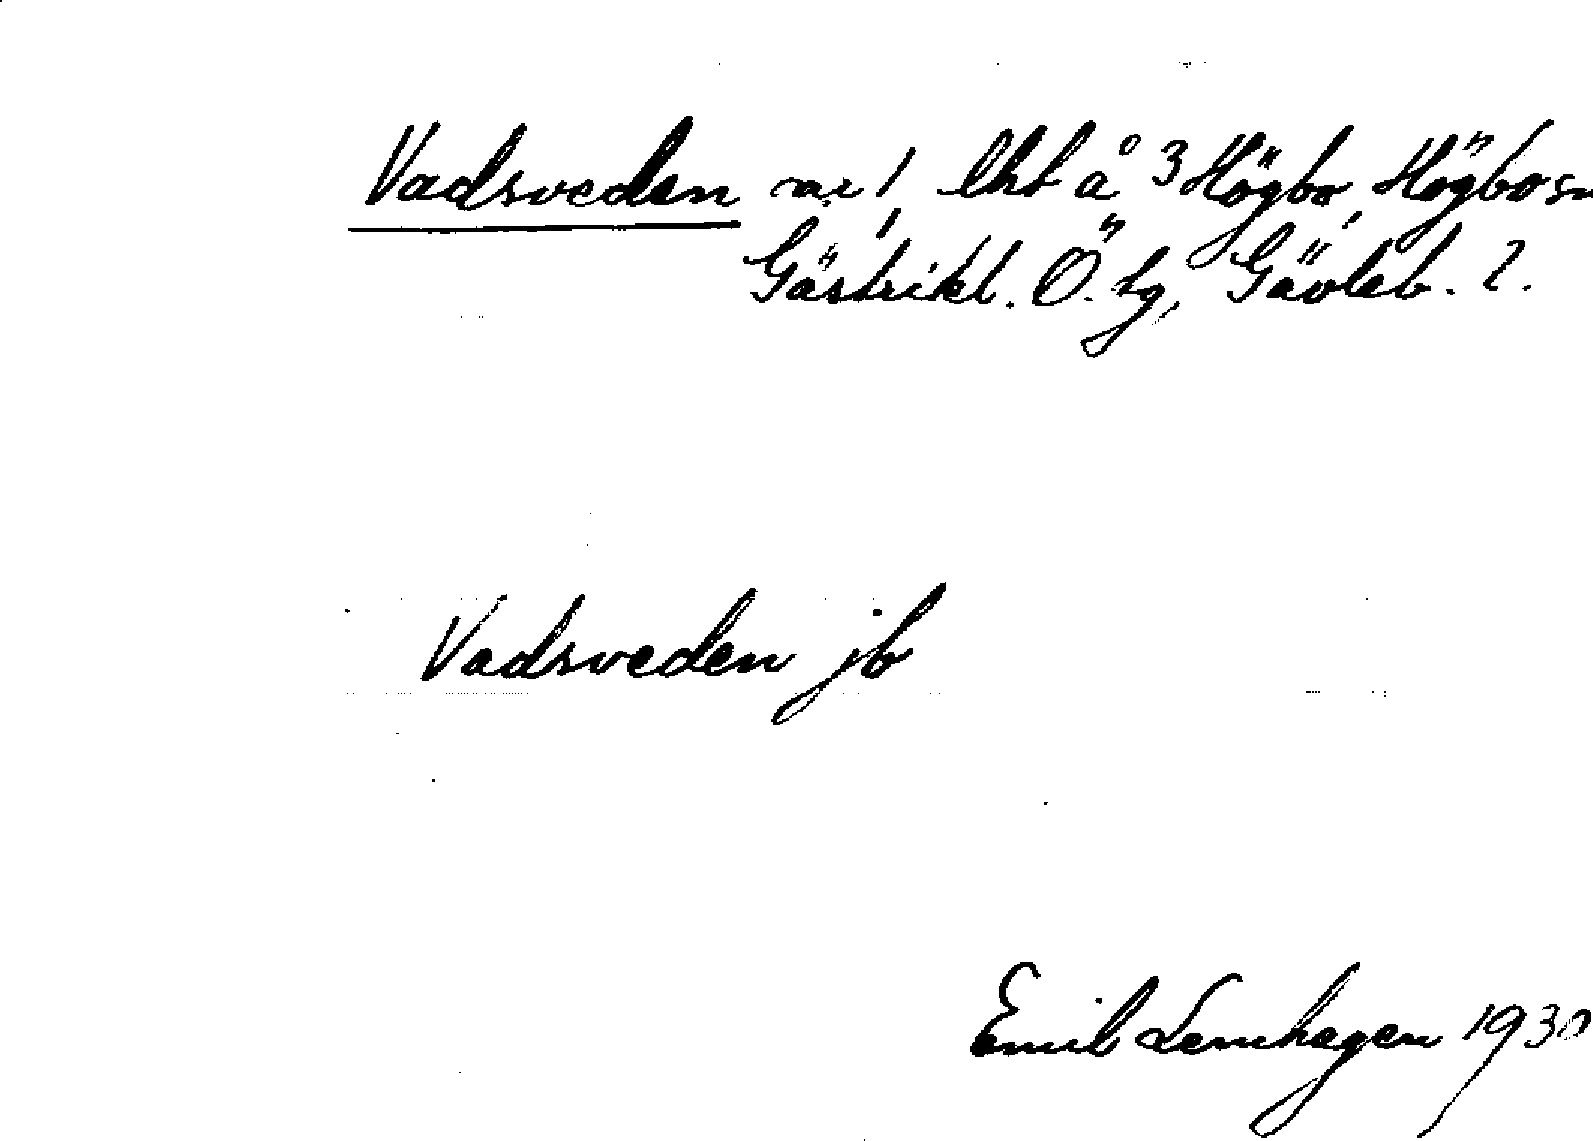 Vadsveden nr 1, lht å 3 Högbo, Högbo sn
Gästrikl. Ö. tg, Gävleb. l.
Vadsveden jb
Emil Lemhagen 1930